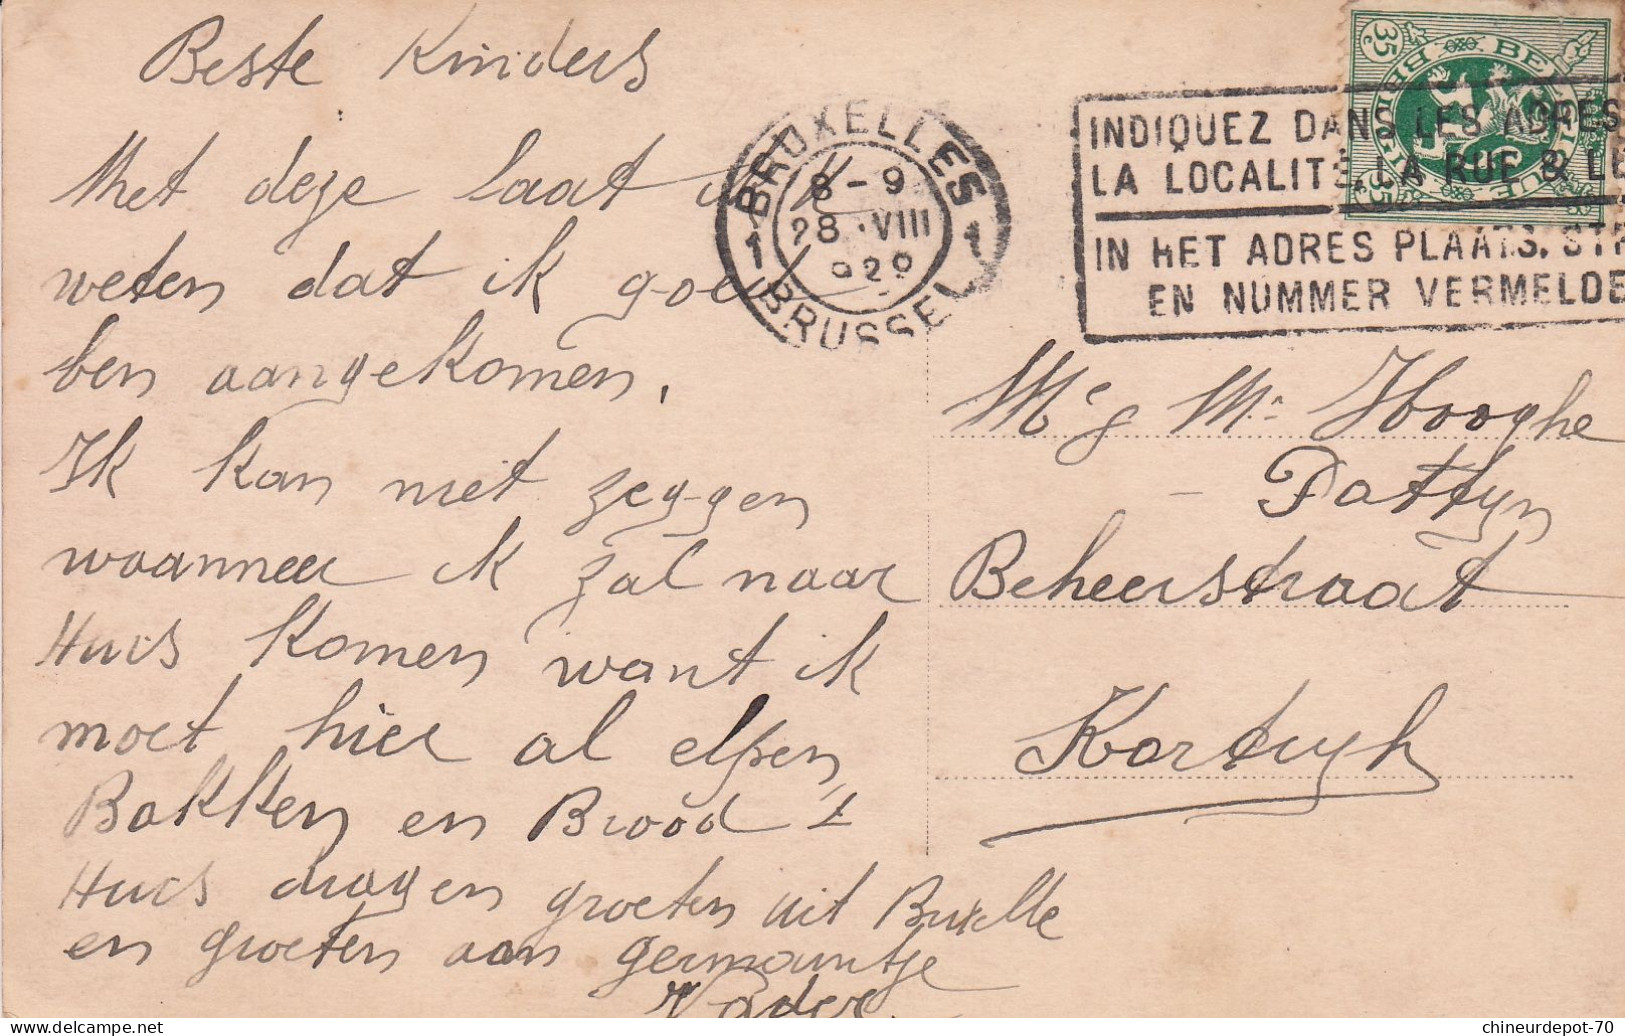 Beste Kinders
Met deze laat ik
weten dat ik goe
ben aangekomen.
Ik kan niet zeggen
waanneer ik zal naar
Huis komen want ik
moet hier al elpen
Bakken en Brood t
Huis dragen groeten uit Buxelle
en groeten aan germaintje
Vader
BRUXELLES
1 8-9 1
28 VIII
929
BRUSSEL
INDIQUEZ DANS LES ADRES
LA LOCALITÉ, LA RUE & LE
IN HET ADRES PLAATS, STR
EN NUMMER VERMELDE
35 c
35 c
Mr & Me Hooghe
- Pattyn
Beheerstraat
Kortryk
chineurdepot-70